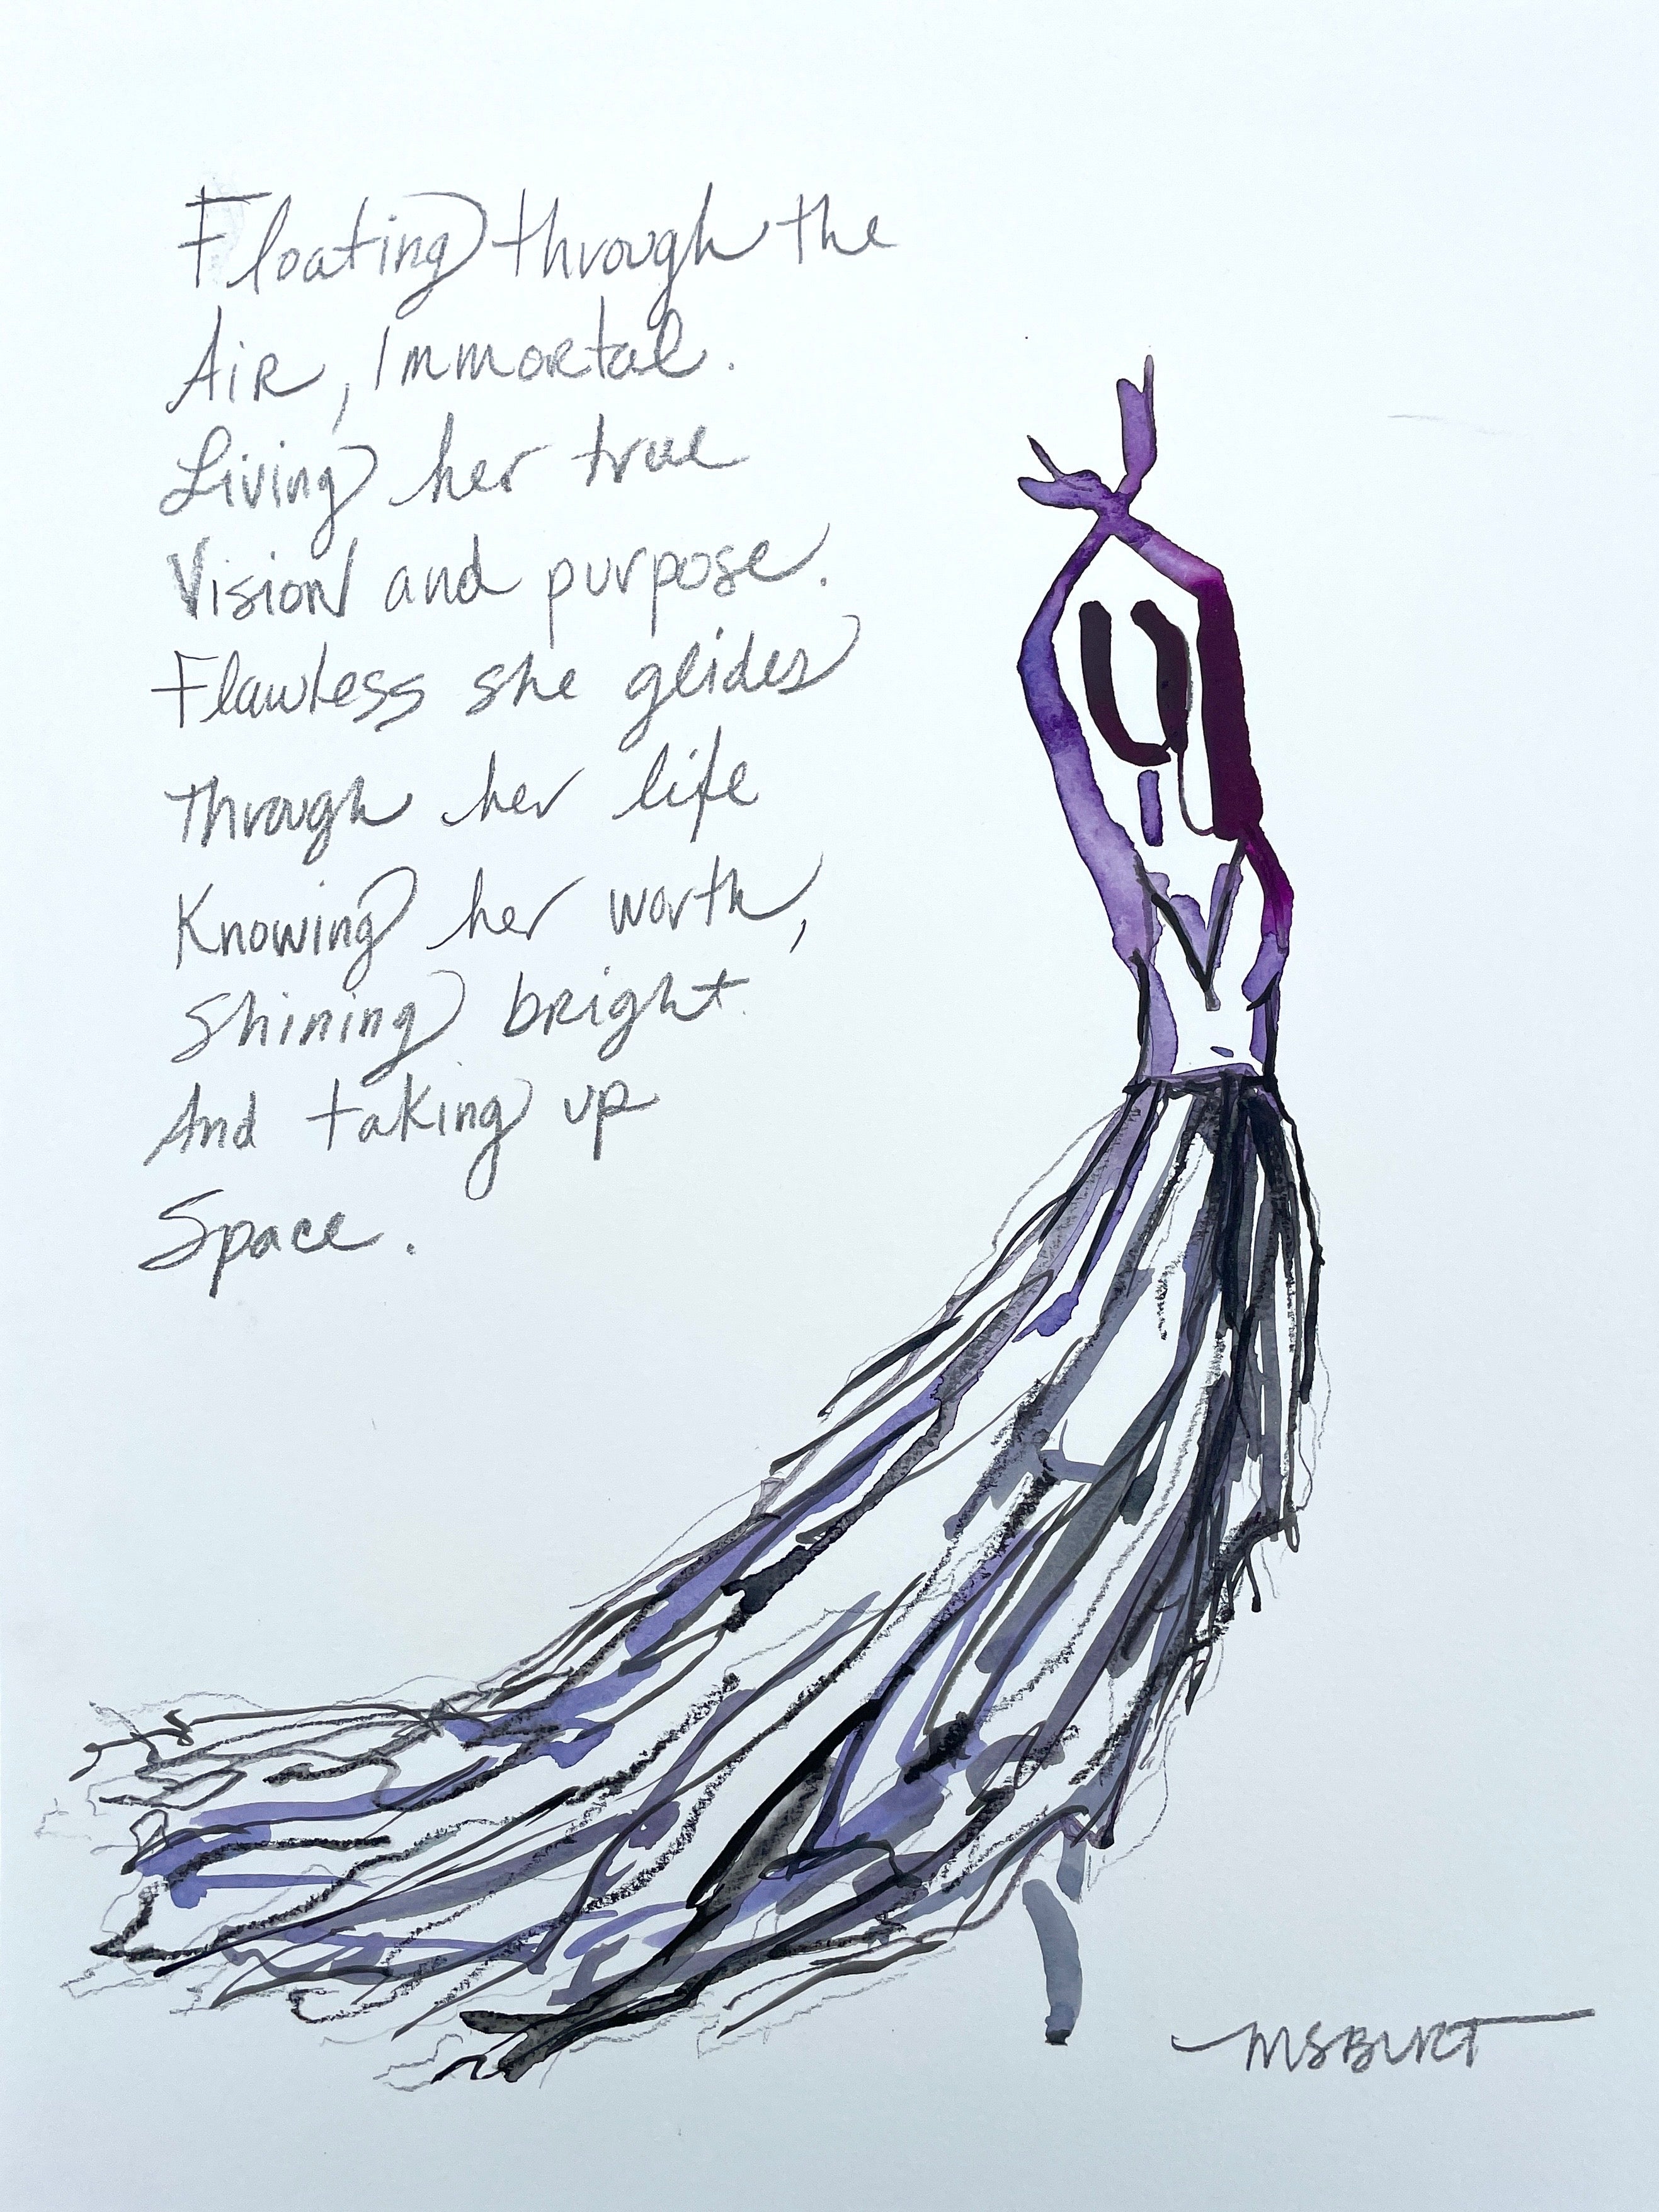 Floating through the
Air, Immortal.
Living her true
Vision and purpose.
Flawless she glides
through her life
Knowing her worth,
Shining bright.
And taking up
Space.
MSBURT